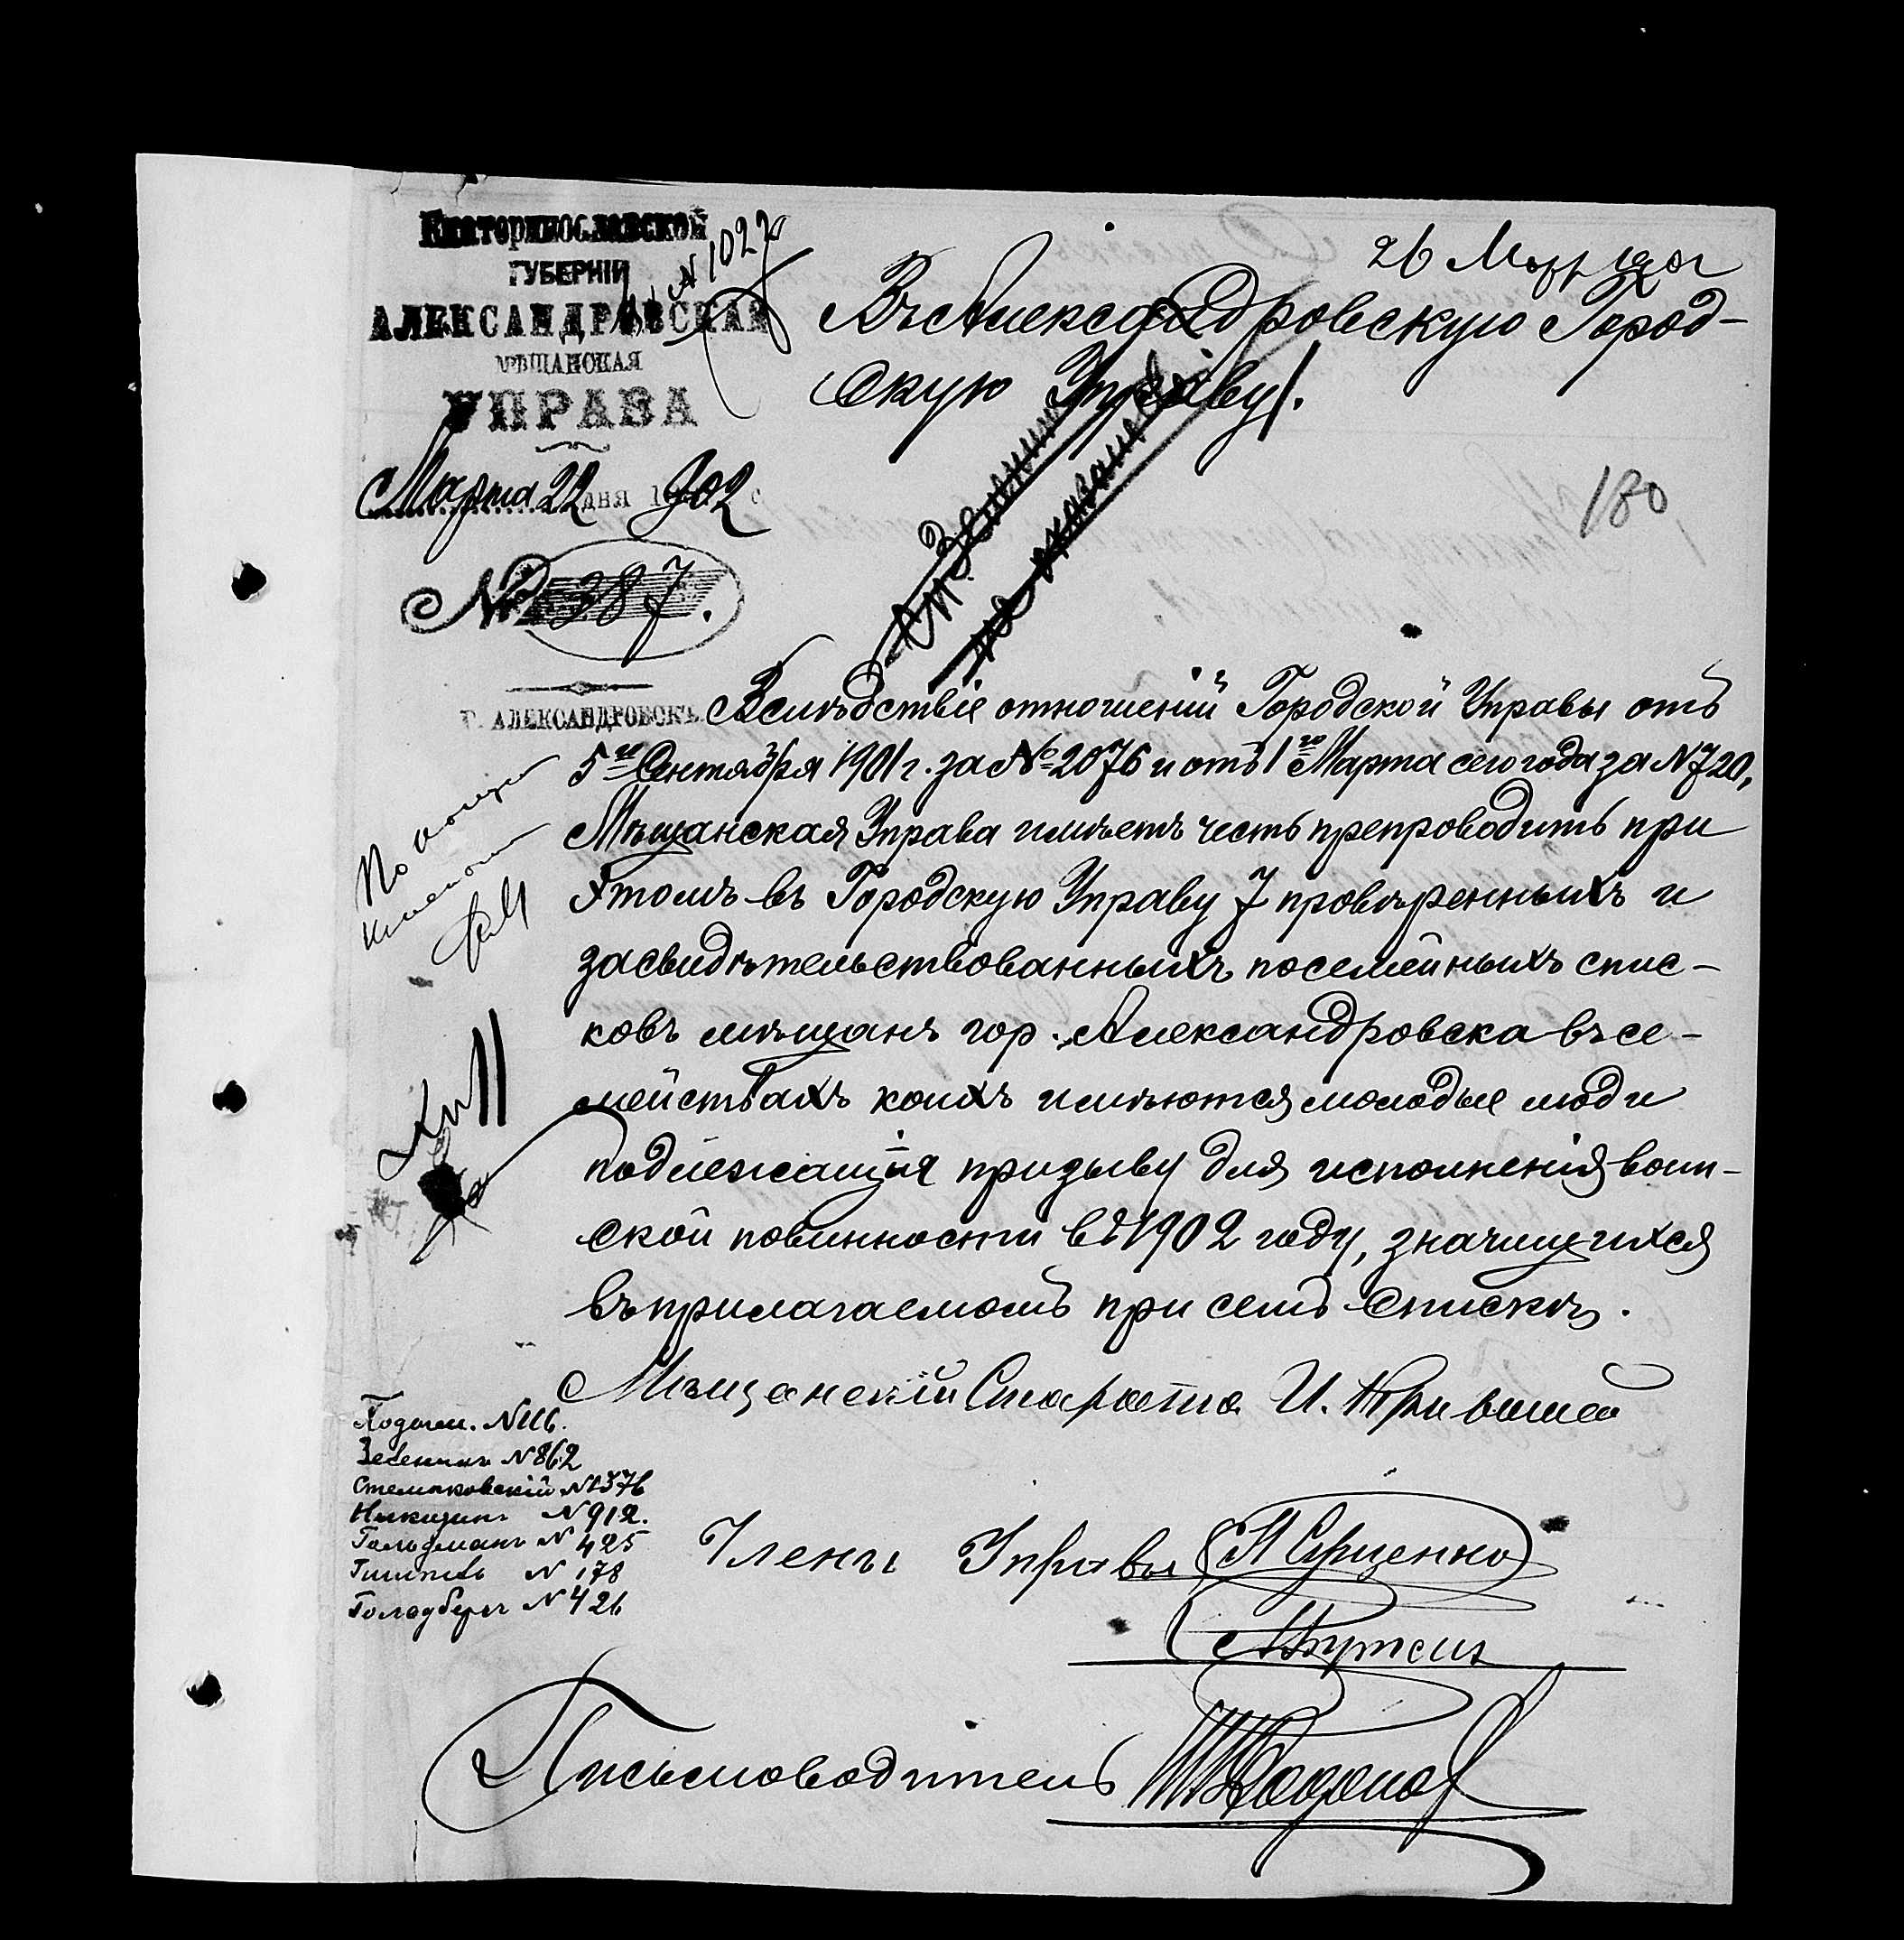 Екатеринославской
ГУБЕРНІИ
АЛЕКСАНДРОВСКАЯ
МѢЩАНСКАЯ
УПРАВА
Марта 22 дня 1902
№ 387.
Г. АЛЕКСАНДРОВСКЪ
N 1022
26 Мар 1902
Въ Александровскую Город-
скую Управу.
180
Вслѣдствіе отношеній Городской Управы отъ
5го Сентября 1901 г. за № 2076 и отъ 1го Марта сего года за N 720,
Мѣщанская Управа имѣетъ честь препроводить при
этомъ въ Городскую Управу 7 провѣренныхъ и
засвидѣтельствованныхъ посемейныхъ спис-
ковъ мѣщанъ гор. Александровска въ се-
мействахъ коихъ имѣются молодые люди
подлежащія призыву для исполненія воин-
ской повинности въ 1902 году, значущихся
въ прилагаемомъ при семъ спискѣ.
Мѣщанскій Староста И.
N 116.
N 862
Стемпковскій N 1376
Никитинъ N 912.
Гольдманъ N 425
N 178
Голодбергъ N 426
Члены Управы
Письмоводитель